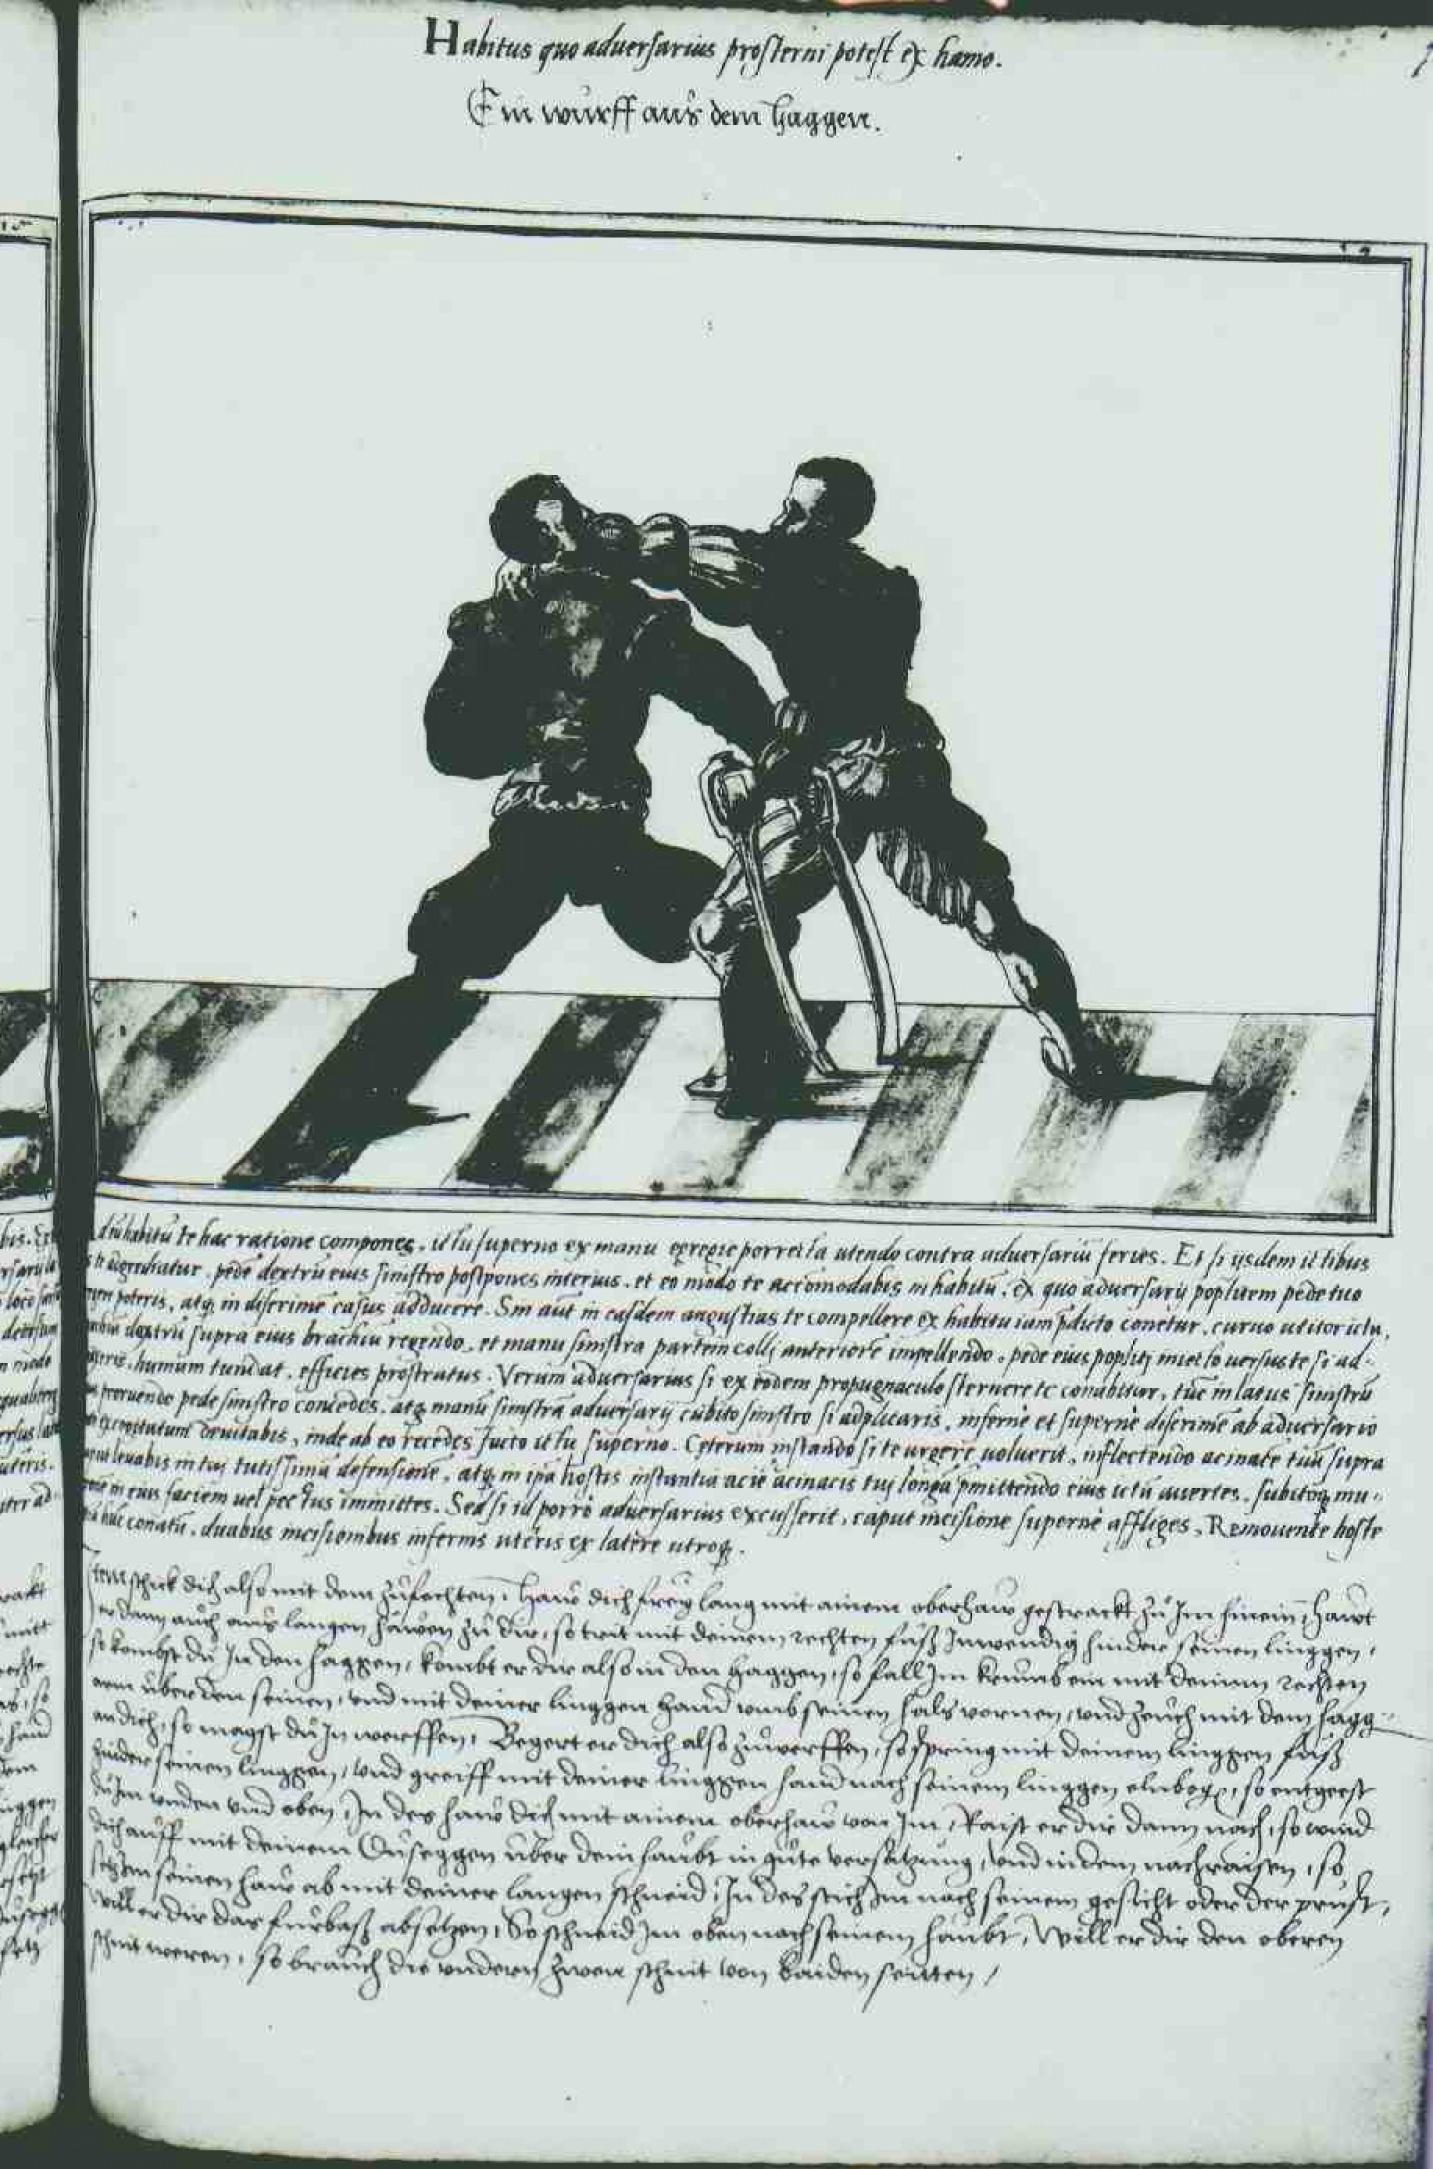 Habitus quo aduersarius prosterni potest ex hamo.
Ein wurff aus dem haggen.
habitũ te hac ratione compones, ictu superno ex manu egregie porrecta utendo contra aduersariũ feries. Et si ijsdem ictibus
te aggrediatur, pedẽ dextrũ eius sinistro postpones interius, et eo modo te accomodabis in habitũ, ex quo aduersarij poplitem pede tuo
poteris, atq; in discrimẽ casus adducere. Sin aũt in easdem angustias te compellere ex habitu iam p̃dicto conetur, curuo utitor ictu,
dextrũ supra eius brachiũ regendo, et manu sinistra partem colli anteriorẽ impellendo, pede eius popliti iniecto uersus te si ad-
humum tundat, efficies prostratus. Verum aduersarius si ex eodem propugnaculo sternere te conabitur, tũc in latus sinistrũ
pede sinistro concedes, atq; manũ sinistrã aduersarij cubito sinistro si adplicaris, infernè et supernè discrimẽ ab aduersario
deuitabis, inde ab eo recedes facto ictu superno. Cęterum instando si te urgere uoluerit, inflectendo acinacẽ tuũ supra
leuabis in tuj tutissimã defensionẽ, atq; in ipa hostis instantia aciẽ acinacis tuj longã p̃mittendo eius ictũ auertes, subitoq; mu-
in eius faciem uel pectus immittes. Sed si id porrò aduersarius excusserit, caput incisione supernè affliges, Remouente hoste
hũc conatũ, duabus incisionibus infernis uteris ex latere utroq;.
Item schick dich also mit dem zufechten, haw dich frey lang mit ainem oberhaw gestrackt zu Im hinein, hawt
er dann auch aus langen häwen zu dir, so trit mit deinem rechten fuß Inwendig hinder seinen linggen,
so kombst du In den haggen, kombt er dir also in den haggen, so fall Im krumb ein mit deinem rechten
arm über den seinen, und mit deiner linggen hand umb seinen hals vornen, und zeuch mit dem hagg-
an dich, so magst du In werffen, Begert er dich also zuwerffen, so spring mit deinem linggen fuß
hinder seinen linggen, und greiff mit deiner linggen hand nach seinem linggen elnbogen, so entgeest
du Im unden und oben, In des haw dich mit ainem oberhaw von Im, Raist er dir dann nach, so wind
dich auff mit deinem Duseggen über dein haubt in gute versatzung, und in dem nachraisen, so
setz Im seinen haw ab mit deiner langen schneid, In des stich Im nach seinem gesicht oder der prust,
Will er dir das furbaß absetzen, So schneid Im oben nach seinem haubt, Will er dir den oberen
schnit weren, so brauch die undern zwen schnit von baiden seitten,